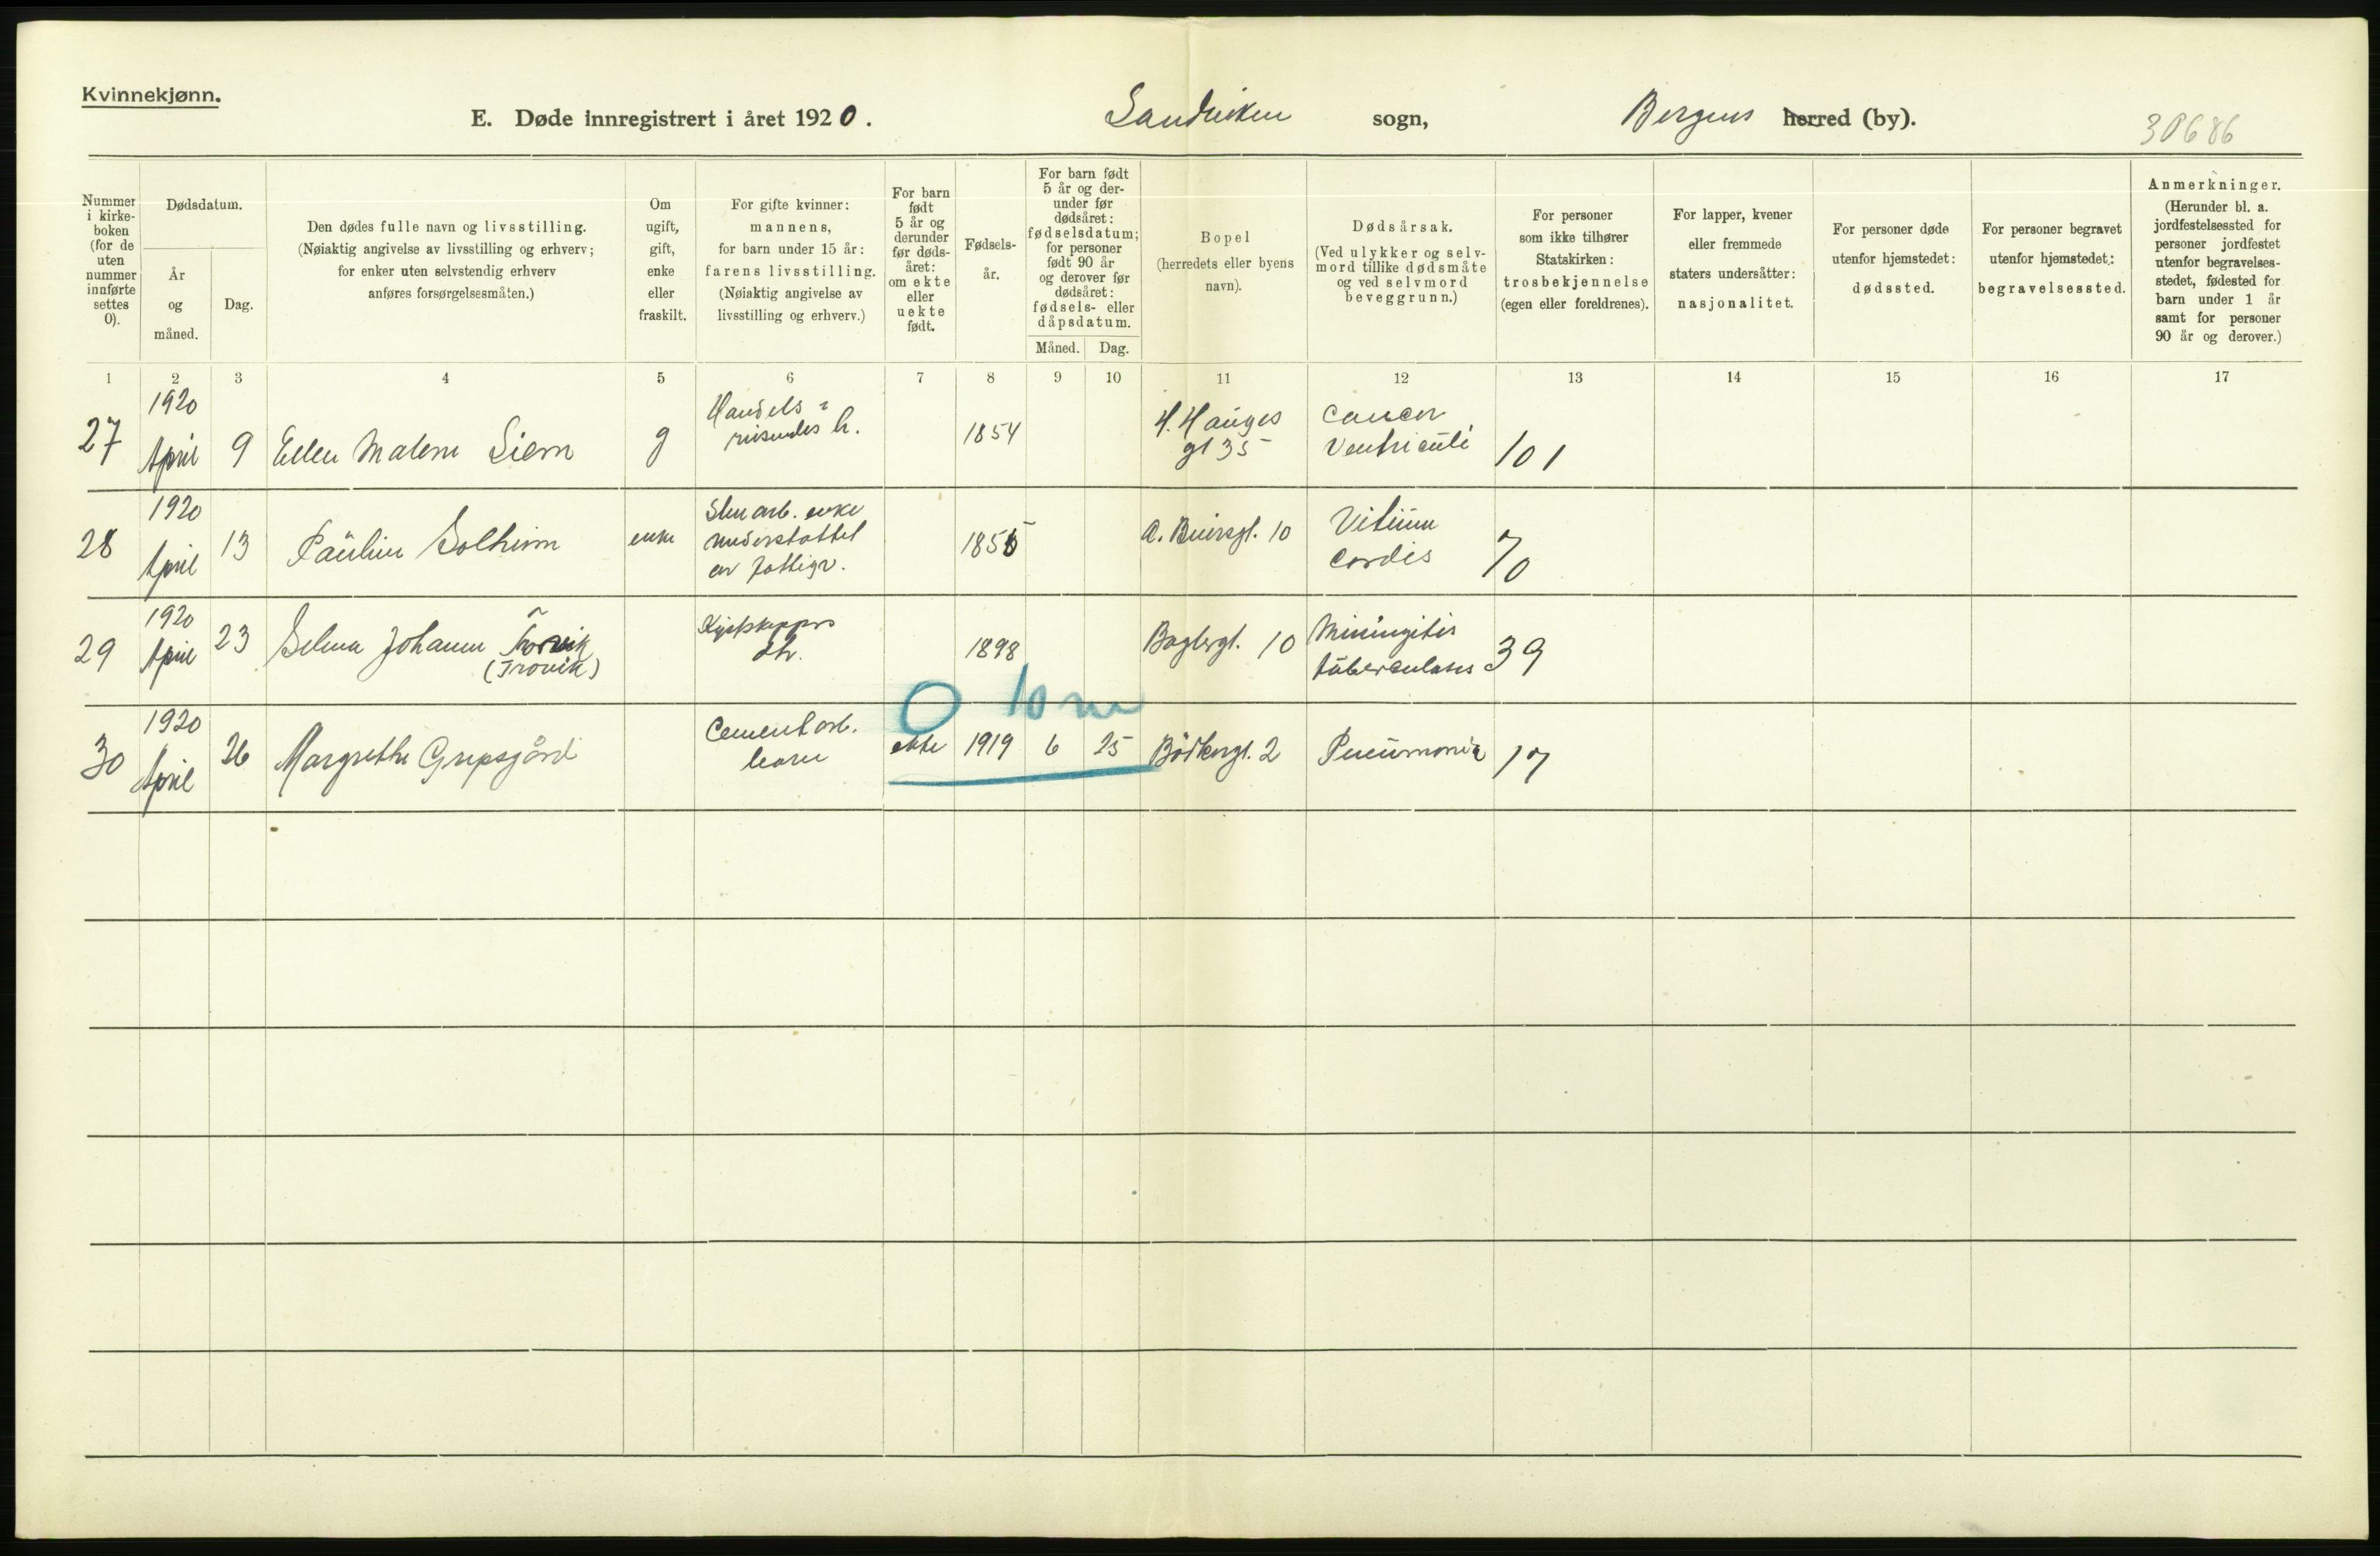 Kvinnekjønn.
E. Døde innregistrert i året 1920. Sandviken sogn, Bergens herred (by). 30686
Nummer i kirke- boken (for de uten nummer innførte settes 0).
Dødsdatum.
År og måned.
Dag.
Den dødes fulle navn og livsstilling.
(Nøiaktig angivelse av livsstilling og erhverv;
for enker uten selvstendig erhverv
anføres forsørgelsesmåten.)
Om ugift, gift, enke eller fraskilt.
For gifte kvinner:
mannens,
for barn under 15 år:
farens livsstilling.
(Nøiaktig angivelse av
livsstilling og erhverv.)
For barn født 5 år og derunder før døds- året: om ekte eller uekte født.
Fødsels- år.
For barn født 5 år og der- under før dødsåret: fødselsdatum; for personer født 90 år og derover før dødsåret: fødsels- eller dåpsdatum.
Måned. Dag.
Bopel
(herredets eller byens
navn).
Dødsårsak.
(Ved ulykker og selv-
mord tillike dødsmåte
og ved selvmord
beveggrunn.)
For personer
som ikke tilhører
Statskirken:
trosbekjennelse
(egen eller foreldrenes).
For lapper, kvener
eller fremmede
staters undersåtter:
nasjonalitet.
For personer døde
utenfor hjemstedet:
dødssted.
For personer begravet
utenfor hjemstedet:
begravelsessted.
Anmerkninger.
(Herunder bl. a.
jordfestelsessted for
personer jordfestet
utenfor begravelses-
stedet, fødested for
barn under 1 år
samt for personer
90 år og derover.)
1 2 3 4 5 6 7 8 9 10 11 12 13 14 15 16 17
27 1920 April 9 Ellen Malene Siem g Handels- reisendes h. 1854 H. Hauges gt 35 Cancer Ventriculi 101
28 1920 April 13 Pauline Solheim enke Stenarb. enke understøttet av fattigv. 1855 A. Buersgt. 10 Vitium Cordis 70
29 1920 April 23 Selma Johanne Trovik (Trovik) Kystskippers dtr. 1898 Baglergt. 10 Meningitis tuberculosis 39
0 10 m
30 1920 April 26 Margrethe Gripsgård Cementarb. barn ekte 1919 6 25 Bødkergt. 2 Pneumonia 17